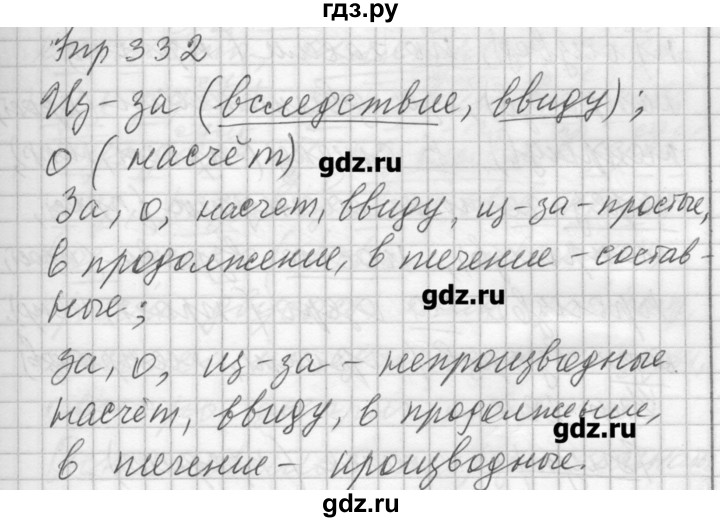 гдз.ру
Упр 332
Из-за (вследствие, ввиду);
о (насчёт)
gdz.ru
За, о, насчет, ввиду, из-за - простые,
в продолжение, в течение - состав-
gdz.ru
ные;
За, о, из-за - непроизводные.
насчёт, ввиду, в продолжение,
gdz.ru
в течение - производные.
gdz.ru